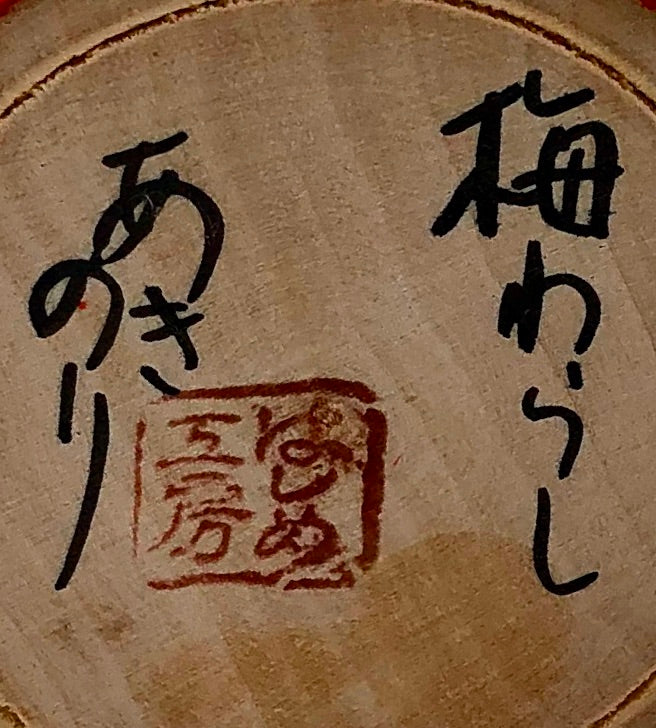 梅わらし
あきのり
工房